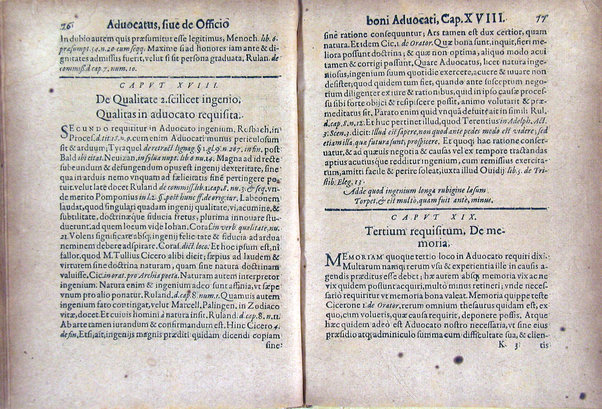 76 Advocatus, siue de Officio
In dubio autem quis præsumitur esse legitimus, Menoch. lib. 6.
præsumpt. 52. n. 20 cum seqq. Maxime si ad honores iam ante & di-
gnitates admissus fuerit, vel si sit persona graduata, Rulan. de
commiss. d. cap. 7. num. 10.
CAPVT XVIII.
De Qualitate 2. scilicet ingenio,
Qualitas in advocato requisita.
SECVNDO requiritur in Advocato ingenium, Rosbach, in
Process. d. tit. 15. n. 9. cum enim Advocati munus periculosum
sit & arduum; Tyraquel de retract. lignag. §. 1. gl. 9. n. 207. in fin. post
Bald. ibi citat. Nevizan. in sylua nupt. lib 6 nu. 14. Magna ad id recte
subeundum & defungendum opus est ingenij dexteritate, sine
qua in arduis nemo vnquam ad fælicitatis fastigia pertingere po-
tuit. velut late docet Ruland de commiss. lib. 1. cap. 8. nu. 3 & seqq. vn-
de merito Pomponius in l. 2. §. post hunc ff. de orig iur. Labeonem
laudat, quod singulari quadam ingenij qualitate, vi, acumine, &
subtilitate, doctrinæque fiducia fretus, plurima innovare stu-
duerat, ad quem locum vide Iohan. Cora in verb. qualitate, nu.
21. Volens significare absque ingenij felicitate & fiducia ad ardua
neminem debere adspirare. Coras. dict. loco. Et hoc ipsum est, ni
fallor, quod M. Tullius Cicero alibi dicit; sæpius ad laudem &
virtutem sine doctrina naturam, quam sine natura doctrinam
valuisse, Cic. in orat. pro Archia poeta. Naturam autem interpretor
ingenium. Natura enim & ingenium adeo sunt affinia, vt sæpe
vnum pro alio ponatur, Ruland. d. cap. 8. num. 1. Quamvis autem
ingenium fato contingat, velut Marcell. Palingen. in Zodiaco
vitæ, docet et cuiuis homini à natura insit, Ruland. d. cap. 8. n. 12.
Ab arte tamen iurandum & confirmandum est. Hinc Cicero 4
de fin. Etsi, ait, ingenijs magnis præditi quidam dicendi copiam
sine
boni Advocati, Cap. XVIII. 77
sine ratione consequuntur; Ars tamen est dux certior, quam
natura. Et idem Cic. 1. de Orator. Quæ bona sunt, inquit, fieri me-
liora possunt doctrina; & quæ non optima, aliquo modo acui
tamen & corrigi possunt. Quare Advocatus, licet natura inge-
niosus, ingenium suum quotidie exercere, acuere & tenere non
desistet, quodque dum satis est, quando ante susceptum nego-
tium diligenter ex iure & rationibus, quid in ipso causæ proces-
su sibi forte objici & respicere possit, animo volutatus & præ-
meditatus sit. Parato enim quid vnquã defuit? ait in simili Rul.
d. cap. 8. n. 12. Et huc pertinet illud, quod Terentius in Adelph. Act.
3. Scen. 3. dicit: illud est sapere, non quod ante pedes modo est videre, sed
etiam illa, quæ futura sunt, prospicere. Et quoque hac ratione conser-
vatur, & ad quævis negotia & causas vel ex tempore tractandas
aptius acutiusque redditur ingenium, cum remissius exercita-
rum, amitti facile & perire soleat, iuxta illud Ouidij lib. 5. de Tri-
stib. Eleg. 13.
Adde quod ingenium longa rubigine læsum
Torpet, & est multo, quam fuit ante, minus.
CAPVT XIX.
Tertium requisitum, De me-
moria.
MEMORIAM quoque tertio loco in Advocato requiri dixi-
Multarum namque rerum vsu & experientia ille in causis a-
gendis præditus esse debet; hæc autem absque memoria vix ac ne
vix quidem possunt acquiri, multo minus retineri; vnde neces-
sario requiritur vt memoria bona valeat. Memoria quippe teste
Cicerone 1 de Orator. rerum omnium thesaurus quidam est, ex
quo, cum vsus, causaque requirit, deponere possis. Atque
hæc quidem adeo est Advocato nostro necessaria, vt sine ejus
præsidio atq; adminiculo summa cum difficultate sua, & clien-
K 3 tis